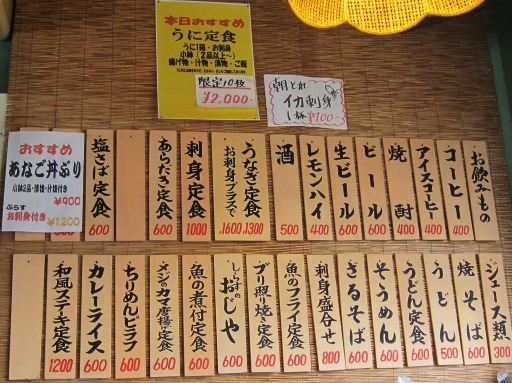 本日おすすめ
うに定食
うに1箱・お刺身
小鉢(2品以上〜)
揚げ物・汁物・漬物・ご飯
限定10枚
¥2,000-
朝とれ
イカ刺身
1杯 ¥700-
おすすめ
あなご丼ぶり
小鉢2品・漬物・汁物付き
¥900
ぷらす
お刺身付き
¥1,200
お飲みもの
コーヒー 400
アイスコーヒー 400
焼酎 400
ビール 600
生ビール 600
レモンハイ 400
酒 500
うなぎ定食
お刺身プラスで
1,300
1,600
刺身定食 1000
あらだき定食 600
塩さば定食 600
ジュース類 300
焼そば 600
うどん 500
うどん定食 600
そうめん 600
ざるそば 600
刺身盛合せ 800
魚のフライ定食 600
ブリ照り焼き定食 600
しらすのおじや 600
魚の煮付定食 600
メジのカマ唐揚げ定食 600
ちりめんピラフ 600
カレーライス 600
和風ステーキ定食 1200